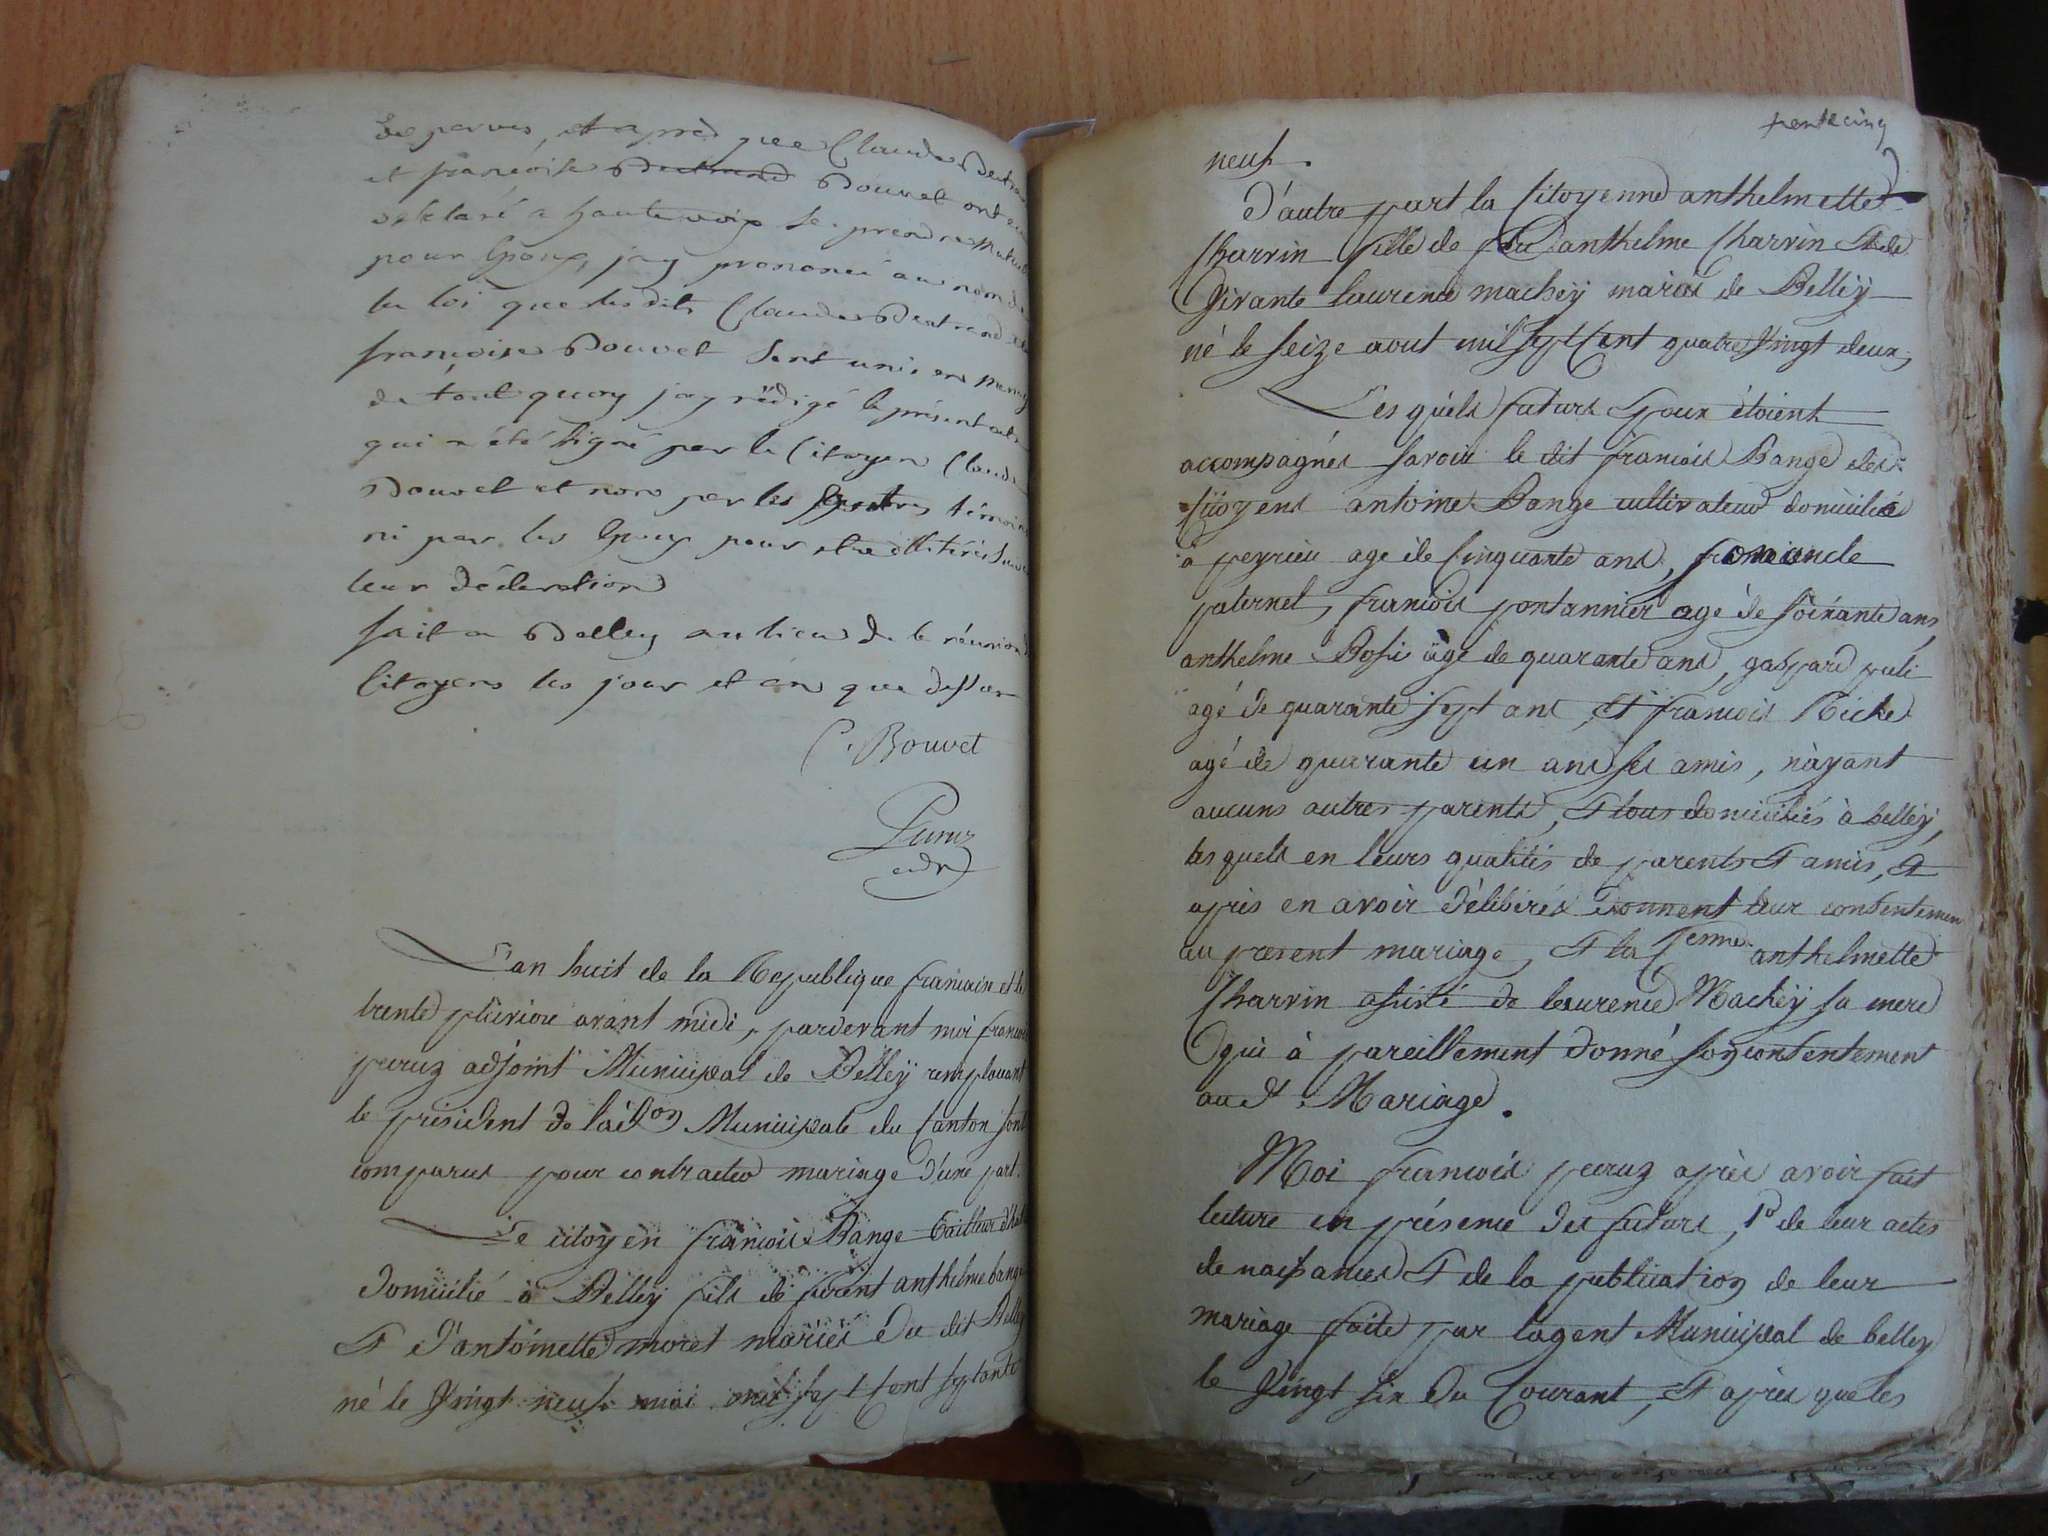 et après que Claude
et françoise Bertrand Bouvet ont
déclaré a haute voix se prendre mutuel
pour Epoux, j'ay prononcé au nom de
la loi que lesdits Claude Bertrand et
françoise Bouvet sont unis en mariage
de tout quoy j'ay rédigé le présent acte
qui a été signé par le Citoyen Claude
Bouvet et non par les témoins
ni par les Epoux pour être illitérés suiva
leur déclaration
fait a Belley au lieu de la réunion d
Citoyens les jour et an que dessus
C. Bouvet
Peruz
adj
L'an huit de la Republique francaise et le
trente pluviose avant midi, pardevant moi francois
peruz adjoint Municipal de Belley remplacant
le président de l'ad.on Municipale du Canton sont
comparus pour contracter mariage d'une part.
Le citoyen francois Bange tailleur d'hab
domicilié à Belley fils de furent anthelme bange
& d'antoinette moret mariés du dit Belley
né le Vingt neuf mai mil sept Cent septante
trente cinq
neuf.
D'autre part la Citoyenne anthelmette
Charvin fille de feu anthelme Charvin & de
Vivante laurence machey mariés de Belley
né le seize aout mil sept Cent quatre Vingt deux,
Les quels futurs Epoux étoient
accompagnés savoir le dit francois Bange des
Citoyens antoine Bange cultivateur domicilié
à peyrieu age de Cinquante ans, son oncle
paternel, francois pontannier agé de soixante ans
anthelme Bossi agé de quarante ans, gaspard
agé de quarante sept ans, & francois Riche
agé de quarante un ans ses amis, n'ayant
aucuns autres parents, & tous domiciliés à belley,
les quels en leurs qualités de parents & amis, &
après en avoir délibérés donnent leur consentemen
au present mariage, & la Jenne anthelmette
Charvin assisté de laurence Machey sa mere
qui à pareillement donné son consentement
au d. Mariage.
Moi francois peruz après avoir fait
lecture en présence des futurs, 1° de leur actes
de naissances & de la publication de leur
mariage faite par l'agent Municipal de belley
le Vingt six du Courant, & après que les